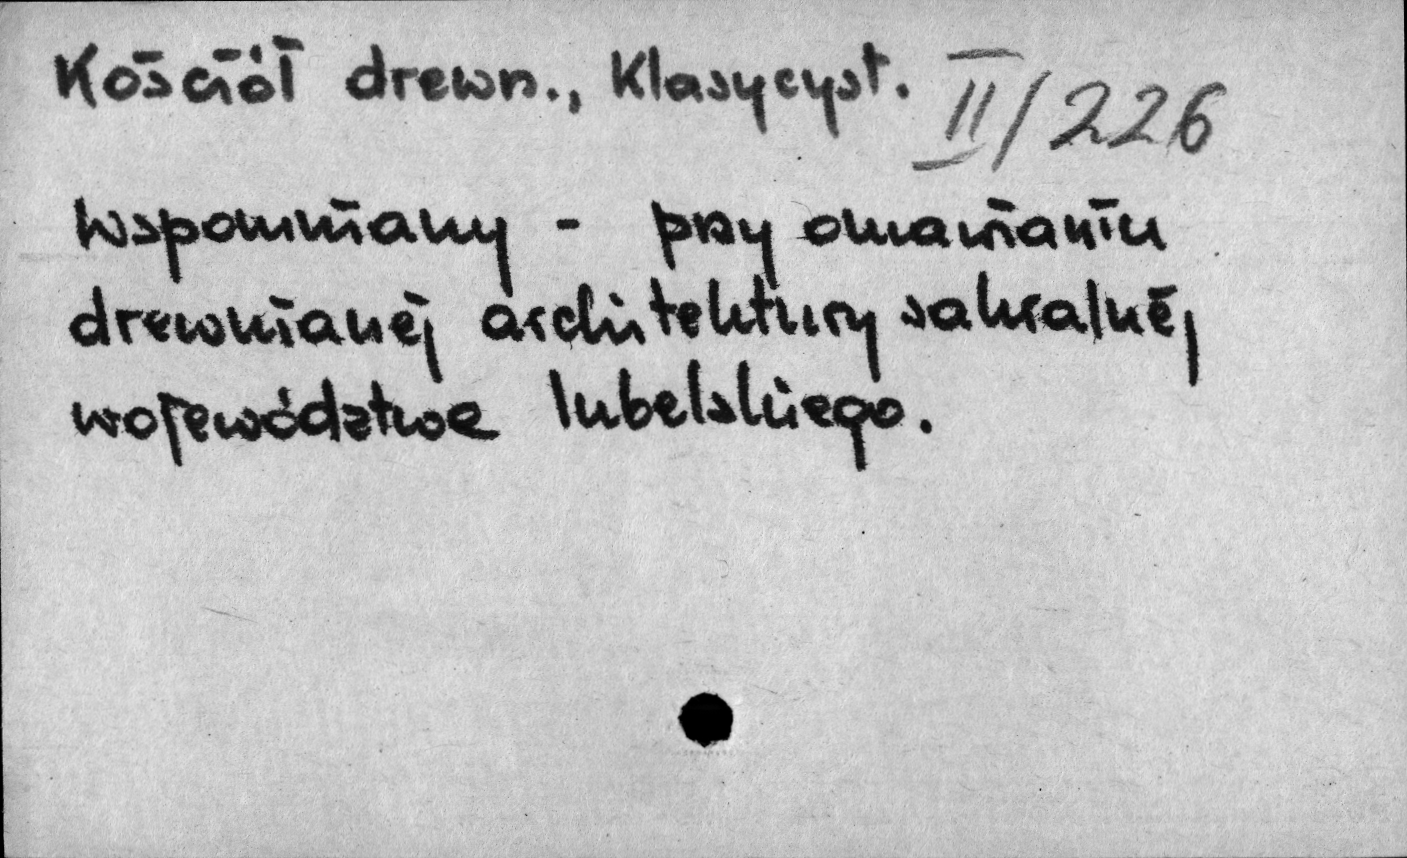 Kościół drewn., Klasycyst. II/226
wspomniany - przy omawianiu
drewnianej architektury sakralnej
województwa lubelskiego.